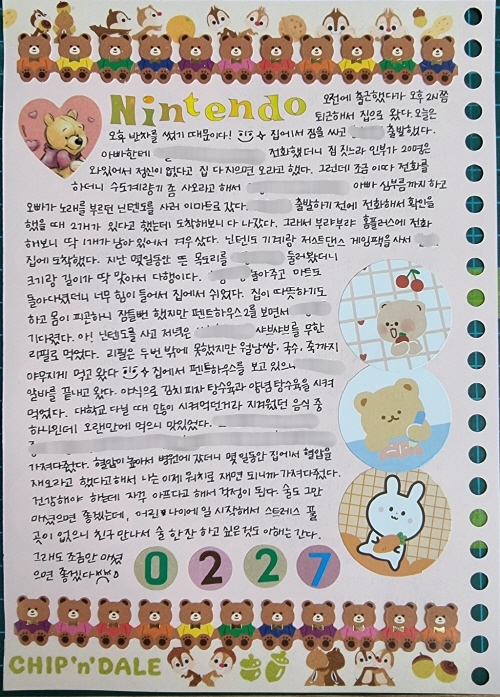 Nintendo
오전에 출근했다가 오후 2시쯤
퇴근해서 집으로 왔다. 오늘은
오후 반차를 썼기 때문이다! 집에서 짐을 싸고 출발했다.
아빠한테 전화했더니 집 짓느라 인부가 20명은
와있어서 정신이 없다고 집 다 지으면 오라고 했다. 그런데 조금 이따 전화를
하더니 수도계량기 좀 사오라고 해서 아빠 심부름까지 하고
오빠가 노래를 부르던 닌텐도를 사러 이마트로 갔다. 출발하기 전에 전화해서 확인을
했을 때 2개가 있다고 했는데 도착해보니 다 나갔다. 그래서 부랴부랴 홈플러스에 전화
해보니 딱 1개가 남아 있어서 겨우 샀다. 닌텐도 기계랑 저스트댄스 게임팩을 사서
집에 도착했다. 지난 몇일동안 뜬 목도리를 둘러봤더니
크기랑 길이가 딱 맞아서 다행이다. 놀아주고 마트도
돌아다녔더니 너무 힘이 들어서 집에서 쉬었다. 집이 따뜻하기도
하고 몸이 피곤하니 잠들뻔 했지만 펜트하우스2를 보면서
기다렸다. 아! 닌텐도를 사고 저녁은 샤브샤브를 무한
리필로 먹었다. 리필은 두번 밖에 못했지만 월남쌈, 국수, 죽까지
야무지게 먹고 왔다 집에서 펜트하우스를 보고 있으니
알바를 끝내고 왔다. 야식으로 김치피자 탕수육과 양념 탕수육을 시켜
먹었다. 대학교 다닐 때 많이 시켜먹던거라 지겨웠던 음식 중
하나인데 오랜만에 먹으니 맛있었다.
가져다줬다. 혈압이 높아서 병원에 갔더니 몇 일동안 집에서 혈압을
재오라고 했다고해서 나는 이제 위치로 재면 되니까 가져다줬다.
건강해야 하는데 자꾸 아프다고 해서 걱정이 된다. 술도 그만
마셨으면 좋겠는데, 어린 나이에 일 시작해서 스트레스 풀
곳이 없으니 친구 만나서 술 한잔 하고 싶은것도 이해는 간다.
그래도 조금만 마셨
으면 좋겠다
0 2 2 7
CHIP'n'DALE